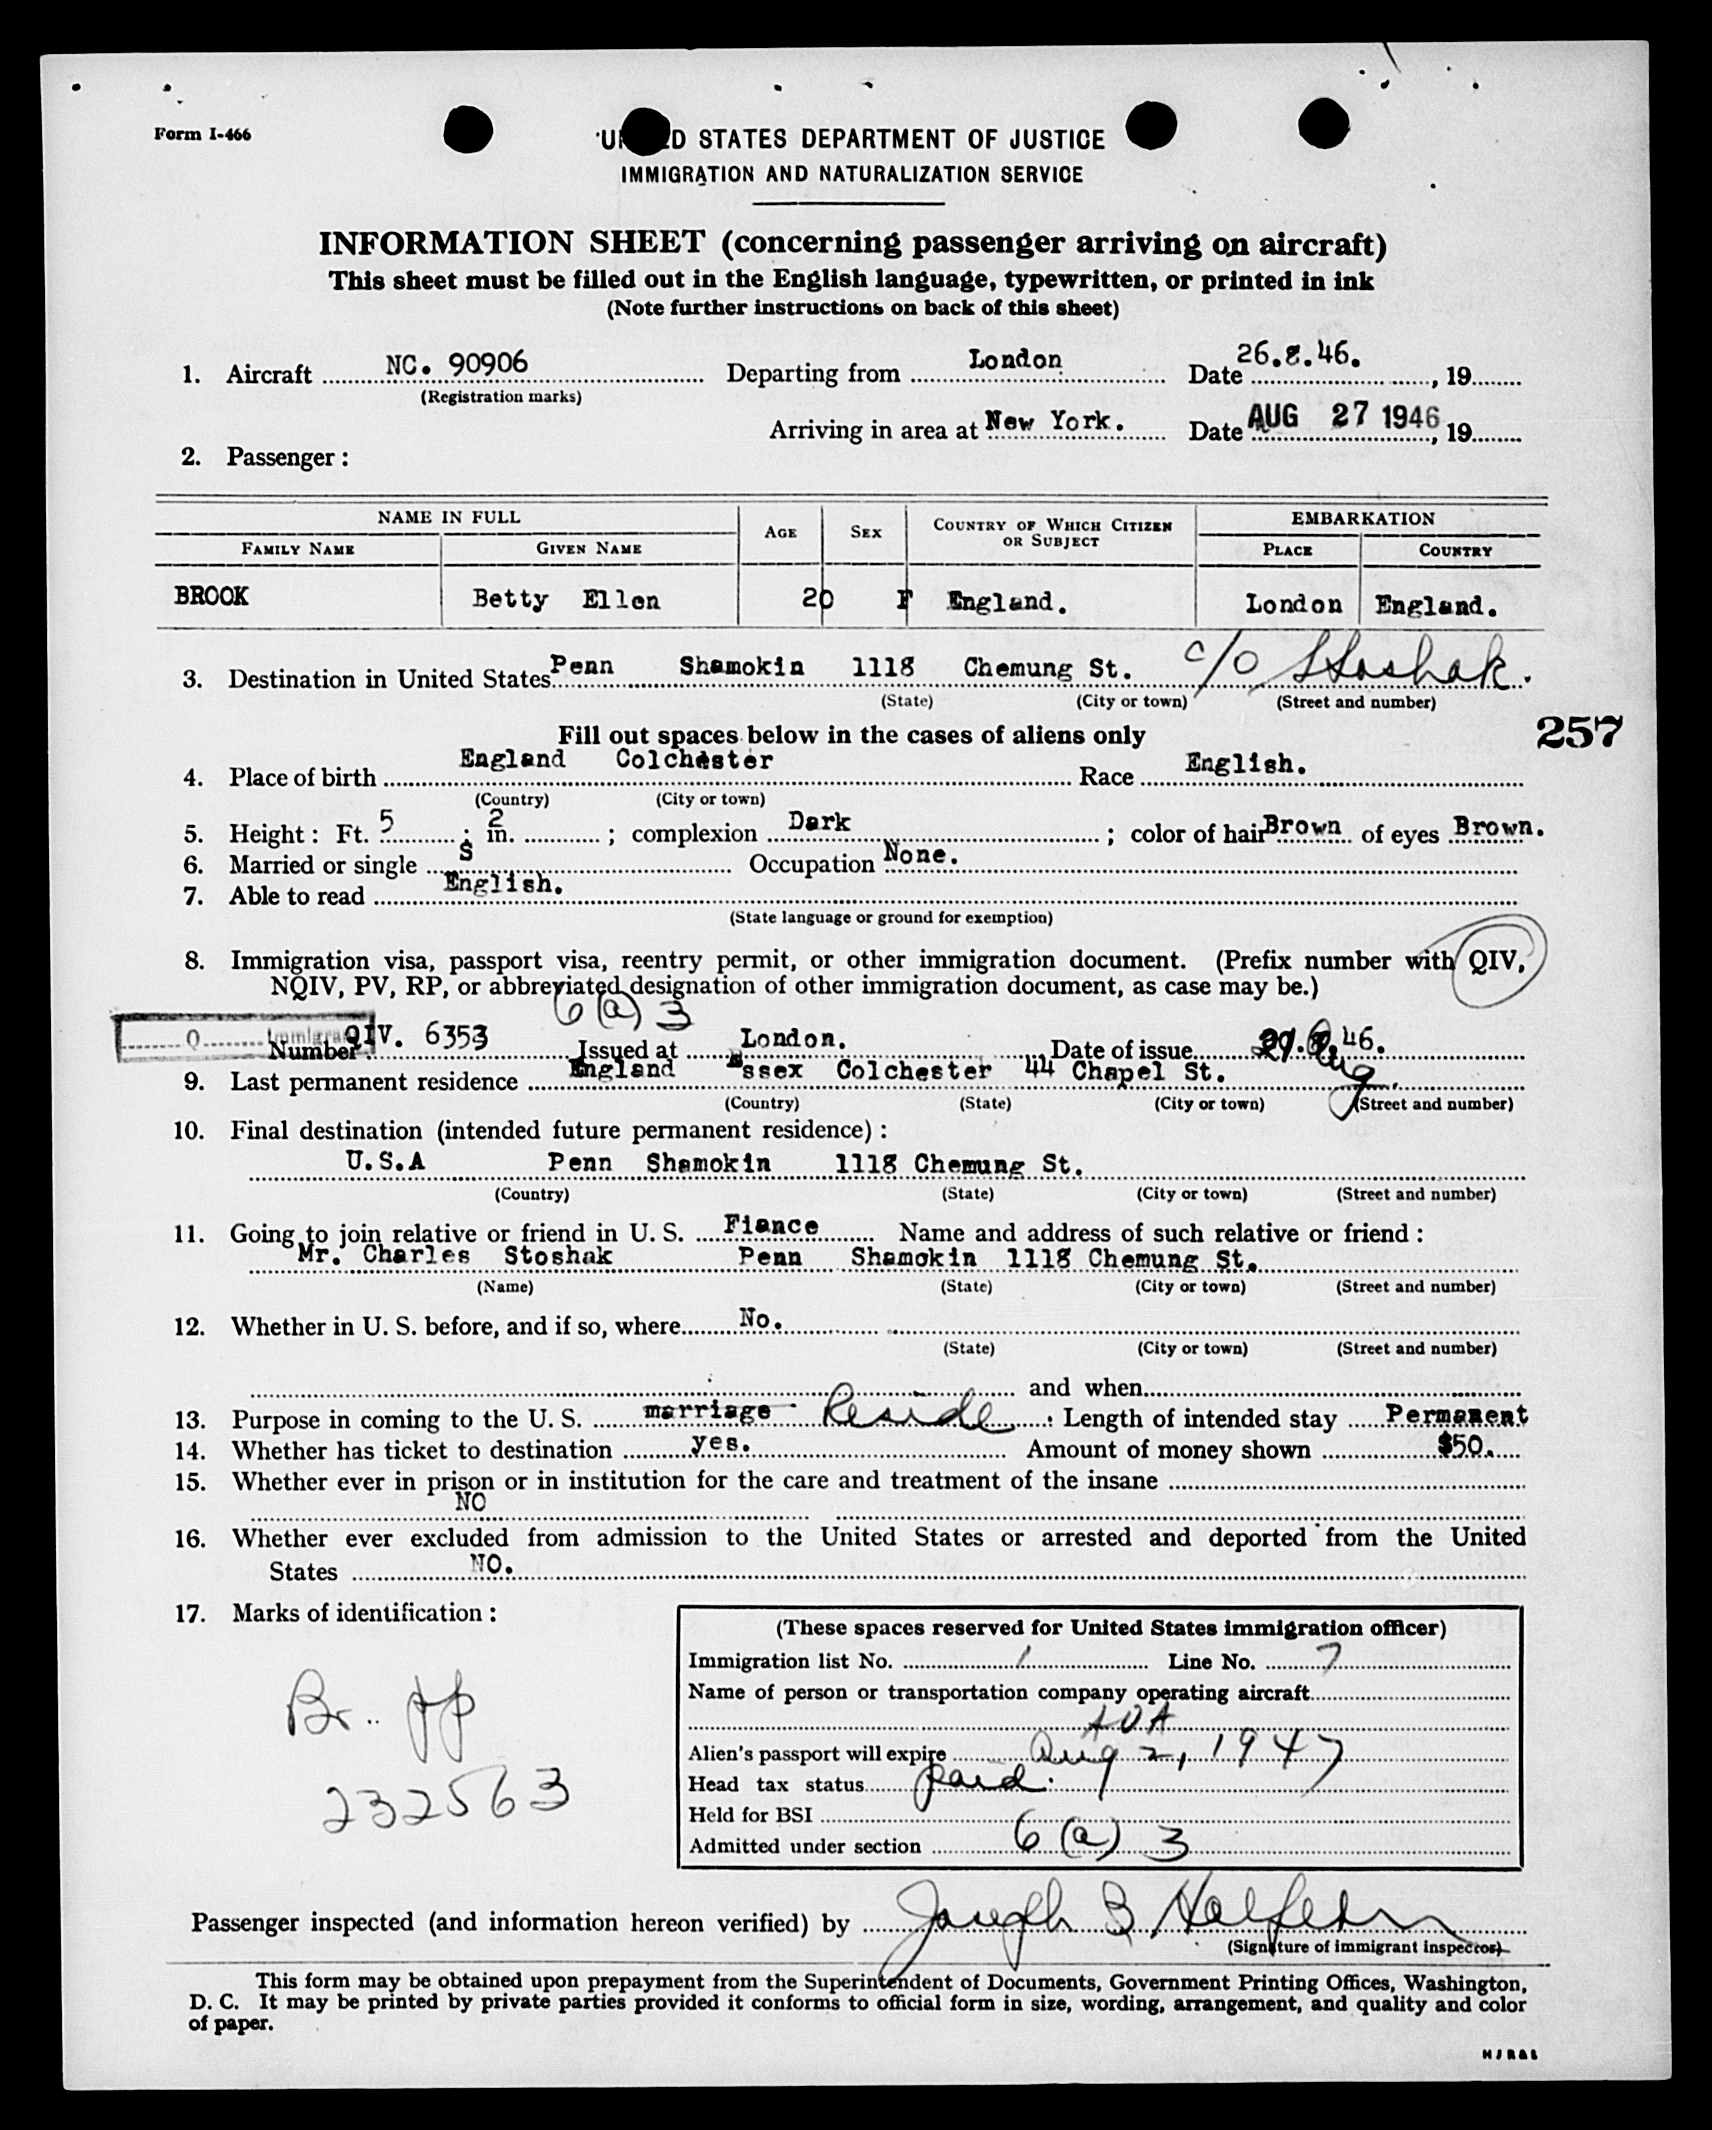 Form I-466
D STATES DEPARTMENT OF JUSTICE
IMMIGRATION AND NATURALIZATION SERVICE
INFORMATION SHEET (concerning passenger arriving on aircraft)
This sheet must be filled out in the English language, typewritten, or printed in ink
(Note further instructions on back of this sheet)
1. Aircraft NC. 90906 Departing from London Date 26.8.46., 19
(Registration marks)
Arriving in area at New York. Date AUG 27 1946, 19
2. Passenger:
NAME IN FULL AGE SEX COUNTRY OF WHICH CITIZEN OR SUBJECT EMBARKATION
FAMILY NAME GIVEN NAME PLACE COUNTRY
BROOK Betty Ellen 20 F England. London England.
3. Destination in United States Penn Shamokin 1118 Chemung St. c/o Stoshak.
(State) (City or town) (Street and number)
257
Fill out spaces below in the cases of aliens only
4. Place of birth England Colchester Race English.
(Country) (City or town)
5. Height: Ft. 5; in. 2; complexion Dark; color of hair Brown of eyes Brown.
6. Married or single S Occupation None.
7. Able to read English.
(State language or ground for exemption)
8. Immigration visa, passport visa, reentry permit, or other immigration document. (Prefix number with QIV,
NQIV, PV, RP, or abbreviated designation of other immigration document, as case may be.)
6 (a) 3
Number QIV. 6353 Issued at London. Date of issue 46. Aug
9. Last permanent residence England Essex Colchester 44 Chapel St.
(Country) (State) (City or town) (Street and number)
10. Final destination (intended future permanent residence):
U.S.A Penn Shamokin 1118 Chemung St.
(Country) (State) (City or town) (Street and number)
11. Going to join relative or friend in U. S. Fiance Name and address of such relative or friend:
Mr. Charles Stoshak Penn Shamokin 1118 Chemung St.
(Name) (State) (City or town) (Street and number)
12. Whether in U. S. before, and if so, where No.
(State) (City or town) (Street and number)
and when
13. Purpose in coming to the U. S. marriage Reside: Length of intended stay Permanent
14. Whether has ticket to destination yes. Amount of money shown $50.
15. Whether ever in prison or in institution for the care and treatment of the insane
NO
16. Whether ever excluded from admission to the United States or arrested and deported from the United
States NO.
17. Marks of identification:
Br.
232563
(These spaces reserved for United States immigration officer)
Immigration list No. 1 Line No. 7
Name of person or transportation company operating aircraft
AOA
Alien's passport will expire Aug 2, 1947
Head tax status paid.
Held for BSI
Admitted under section 6 (a) 3
Passenger inspected (and information hereon verified) by Joseph B Halfern
(Signature of immigrant inspector)
This form may be obtained upon prepayment from the Superintendent of Documents, Government Printing Offices, Washington,
D. C. It may be printed by private parties provided it conforms to official form in size, wording, arrangement, and quality and color
of paper.